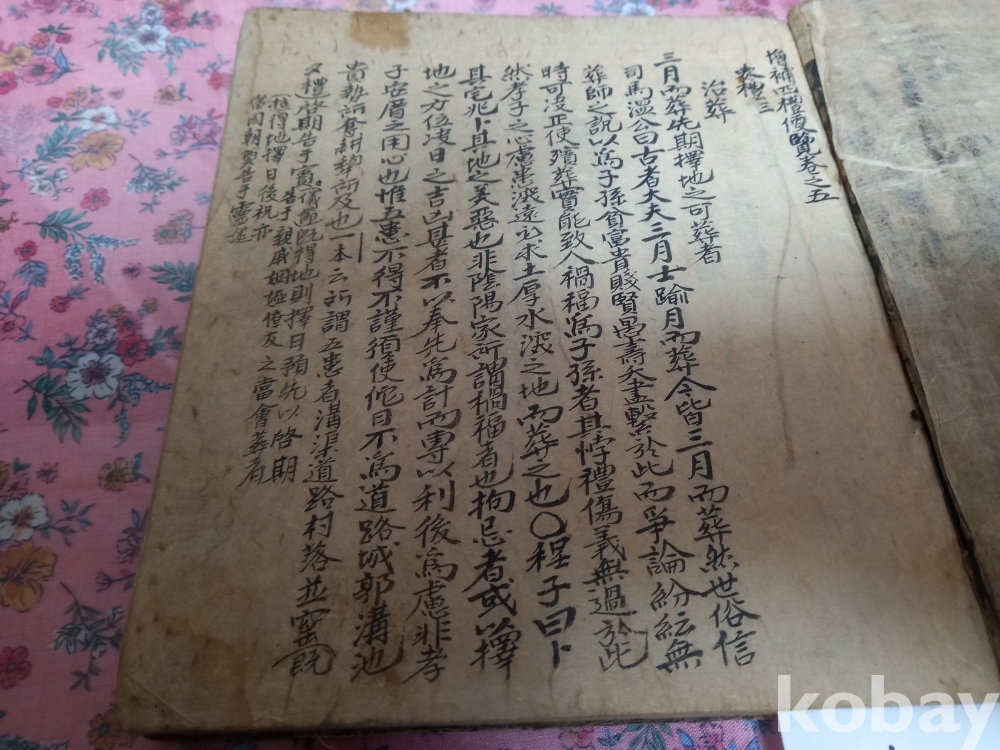 增補四禮便覽卷之五
喪禮三
治葬
三月而葬先期擇地之可葬者
司馬溫公曰古者大夫三月士踰月而葬今皆三月而葬然世俗信
葬師之說以爲子孫貧富貴賤賢愚壽夭盡繫於此而爭論紛紜無
時可决正使殯葬實能致人禍福爲子孫者其悖禮傷義無過於此
然孝子之心慮患深遠必求土厚水深之地而葬之也〇程子曰卜
其宅兆卜其地之美惡也非陰陽家所謂禍福者也拘忌者或以擇
地之方位决日之吉凶甚者不以奉先爲計而專以利後爲慮非孝
子安厝之用心也惟五患不得不謹須使佗日不爲道路城郭溝池
貴勢所奪耕犂所及也一本云所謂五患者溝渠道路村落並窰
夕禮啓期告于賓儀節旣得地則擇日預先以啓期
告于親戚姻婭僚友之當會葬者
擇得地擇日後祝亦
告于靈筵
kobay